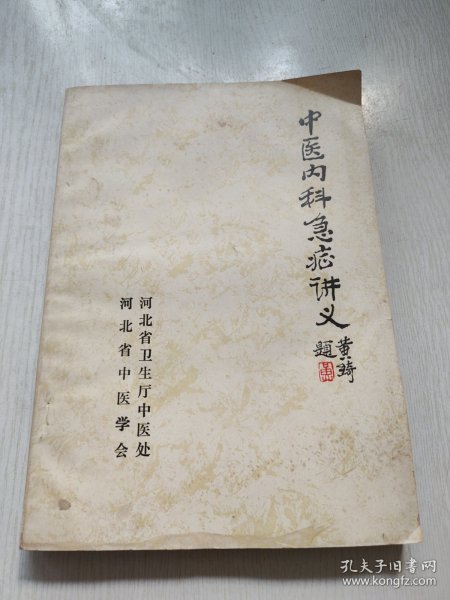 中医内科急症讲义
黄绮
题
河北省卫生厅中医处
河北省中医学会
孔夫子旧书网
www.kongfz.com